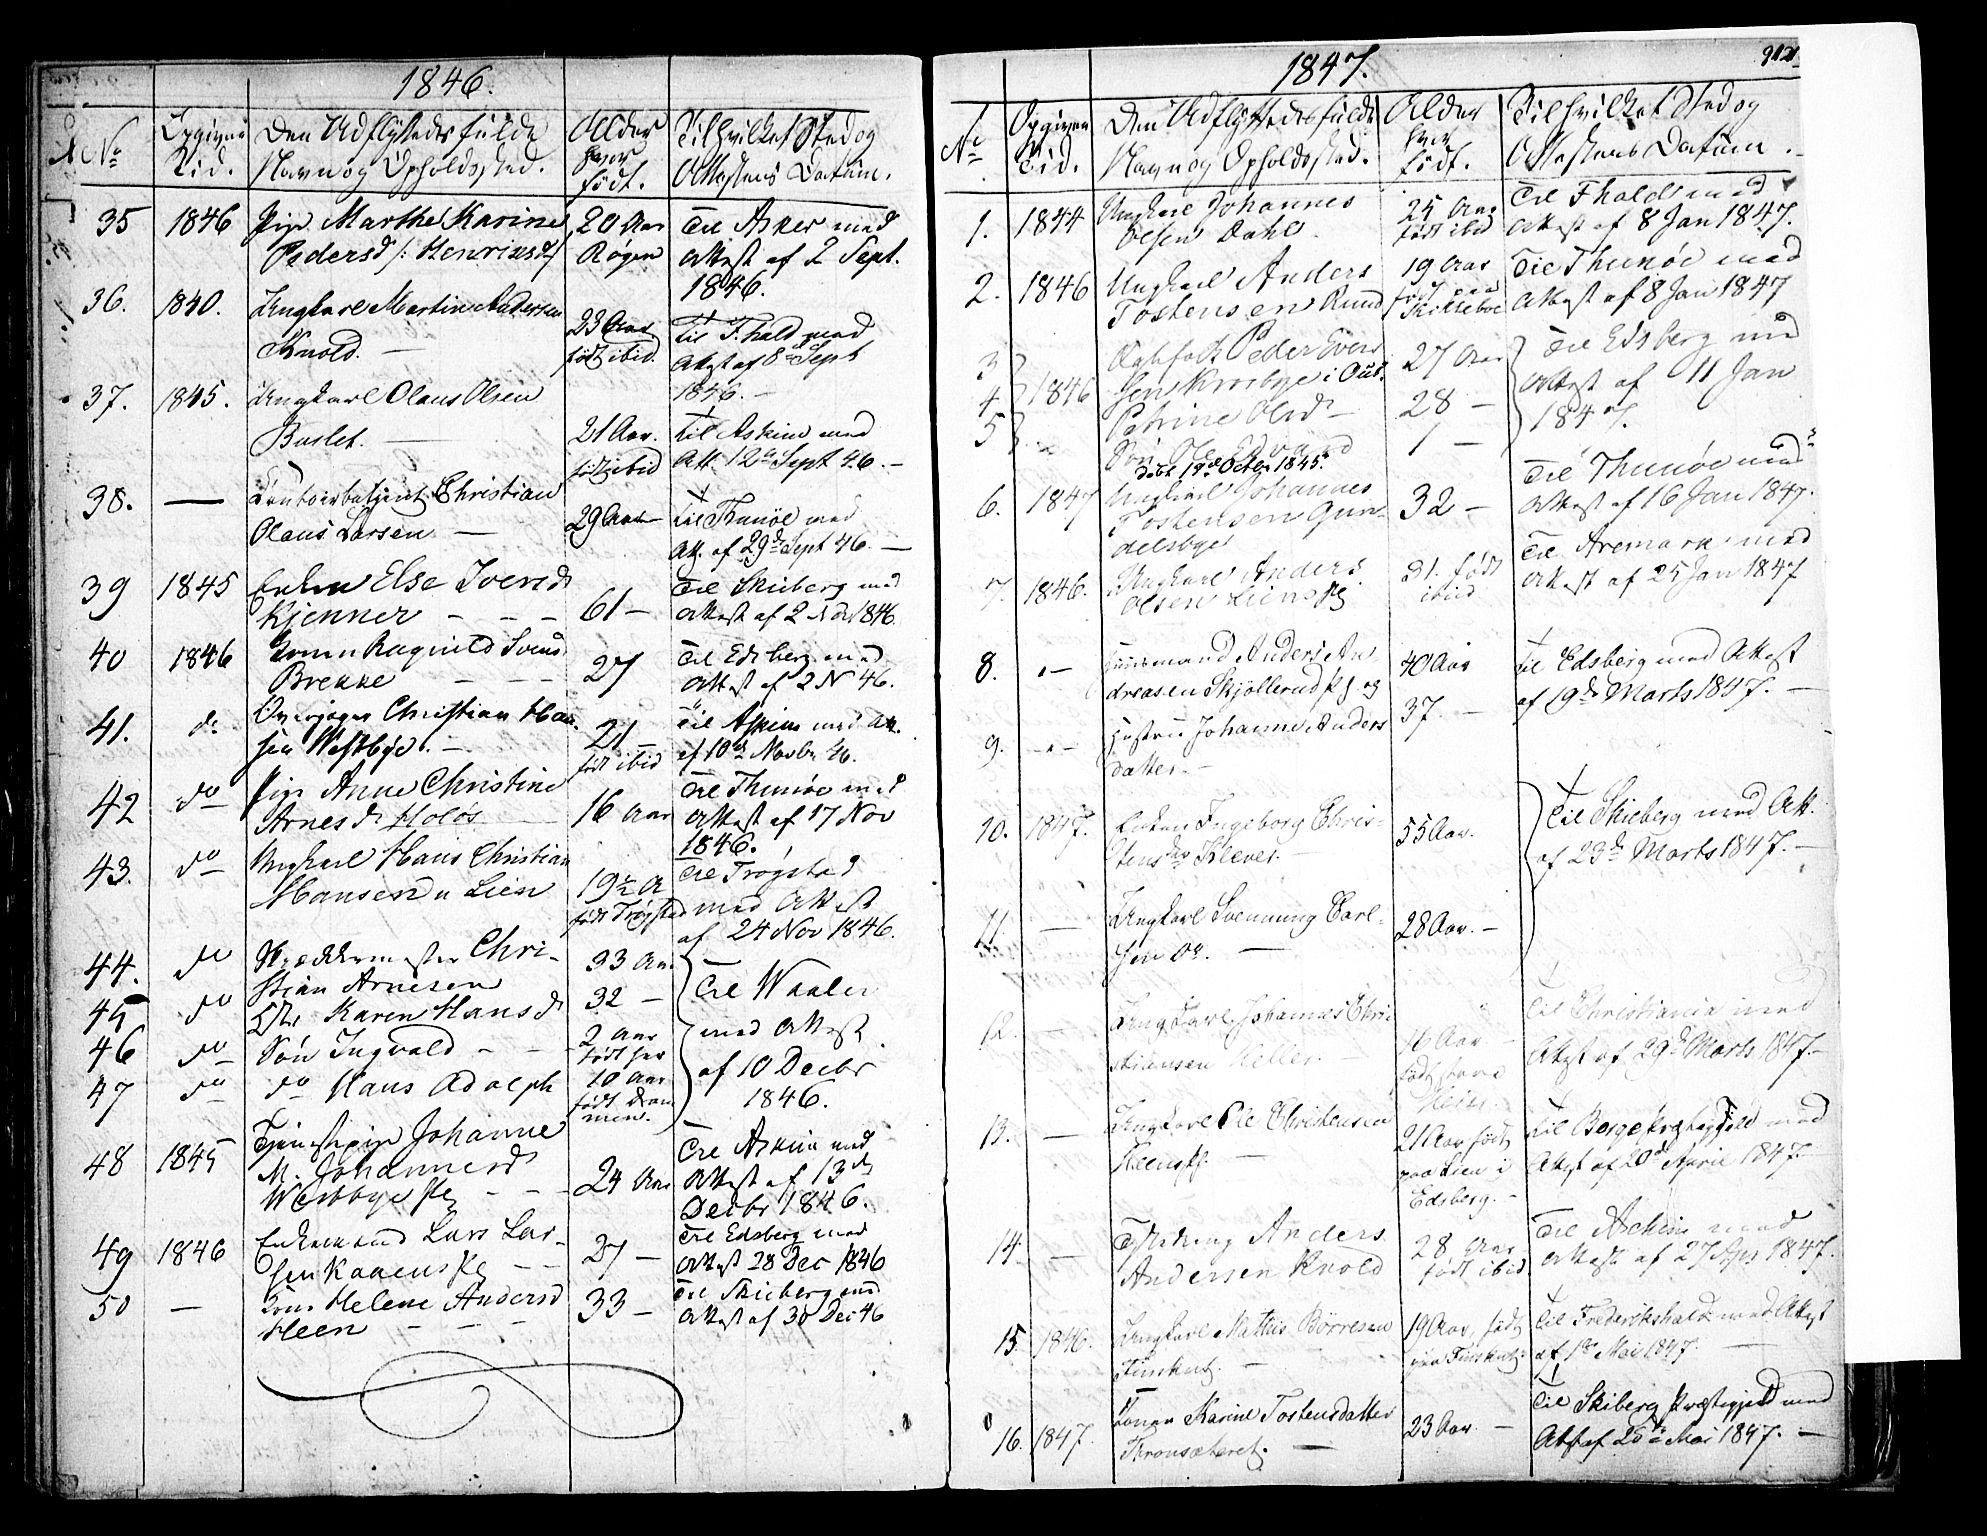 1846.
No
Opgivne Tid.
Den Udflyttedes fulde
Navn og Opholdssted.
Alder
hvor
født.
Til hvilket Sted og
Attestens Datum.
35 1846 Pige Marthe Karine 20 Aar Til Asker med
Pedersd /: Henriksd Røgen Attest af 2 Sept.
1846.
36. 1840. Ungkarl Martin Andersen 23 Aar Til F.hald med
Knold. — født ibid. Attest af 8de Sept
1846. —
37. 1845. Ungkarl Olaus Olsen 21 Aar. Til Askim med
Buslet. — født ibid Att. 12te Sept 46. —
38. — Contoirbetjent Christian 29 Aar Til Thunøe med
Olaus Larsen — Att. af 29de Sept 46. —
39 1845 Enken Else Iversd 61 — Til Skieberg med
Kjenner — — — Attest af 2 Nov 1846.
40 1846 Konen Ragnild Svends 27 Til Edsberg med
Brekke — — — Attest af 2 N 46.
41. do Christian Han- 21 — Til Askim med Att.
sen Westbye. — født ibid af 10de Novbr 46.
42 do Pige Anne Christine 16 Aar Til Thunøe med
Arnesdr Holøs — Attest af 17 Nov
1846.
43. do Ungkarl Hans Christian 19½ A Til Trøgstad
Hansen u Lien født Trøgstad med Attest
af 24 Nov 1846.
44. do Skræddermester Chri- 33 Aar Til Waaler
stian Arnesen
45 do Karen Hansd 32 — med Attest
46 do Søn Ingvald — — 2 Aar født her af 10 Decbr
47 do do Hans Adolph 10 Aar født Drammen. 1846.
48 1845 Tjenestepige Johanne 24 Aar Til Askim med
M. Johannesd Attest af 13de
Westbye — — Decbr 1846.
49 1846 Enkemand Lars Lar- 27 — Til Edsberg med
sen Attest 28 Dec 1846
50 — Kone Helene Andersd 33 — Til Skieberg med
Heen — — — Attest af 30 Dec 46
1847.
No
Opgiven Tid.
Den Udflyttedes fulde
Navn og Opholdssted.
Alder
hvor
født.
Til hvilket Sted og
Attestens Datum.
1. 1844 Ungkarl Johannes 25 Aar Til Fhald med
Olsen Dahl. født ibid Attest af 8 Jan 1847.
2. 1846 Ungkarl Anders 19 Aar Til Thunøe med
Tostensen Rund født Attest af 8 Jan 1847
3 Peder Evens 27 Aar Til Edsberg med
4 1846 sen Krosbye i Attest af 11 Jan
Petrine Olsd — 28 — 1847.
5 Søn Ole Edvard 1 —
Døbt 19de Octbr 1845.
6. 1847 Ungkarl Johannes 32 — Til Thunøe med
Tostensen Gun- Attest af 16 Jan 1847.
delsbye
7. 1846. Ungkarl Anders 31. født Til Aremark med
Olsen ibid Attest af 25 Jan 1847
8. — Huusmand Anders An- 40 Aar Til Edsberg med Attest
dreasen Skjøllerud og af 19de Marts 1847. —
9. — Hustru Johanne Anders 37. —
datter. —
10. 1847. Enken Ingeborg Chris- 55 Aar. Til Skieberg med Att.
tensdr Klever. — af 23de Marts 1847. —
11. — Ungkarl Svenning Carl- 28 Aar. —
sen —
12. — Ungkarl Johannes Chri- 16 Aar — Til Christiania med
stiansen Heller. født Attest af 29de Marts 1847. —
13. — Ungkarl Ole Christensen 21 Aar født Til Berge Præstegjeld med
paa Lien i Attest af 20de April 1847.
Edsberg. —
14. — Anders 28 Aar Til Askim med
Andersen Knold født ibid Attest af 27 Apr 1847.
15. 1846. Ungkarl Mathis Børresen 19 Aar, født Til Frederikshald med Attest
— paa af 1ste Mai 1847. —
16. 1847. Konen Karine Tostensdatter 23 Aar. — Til Skiberg Præstegjeld med
Kronsæteret. — Att. af 20de Mai 1847. —